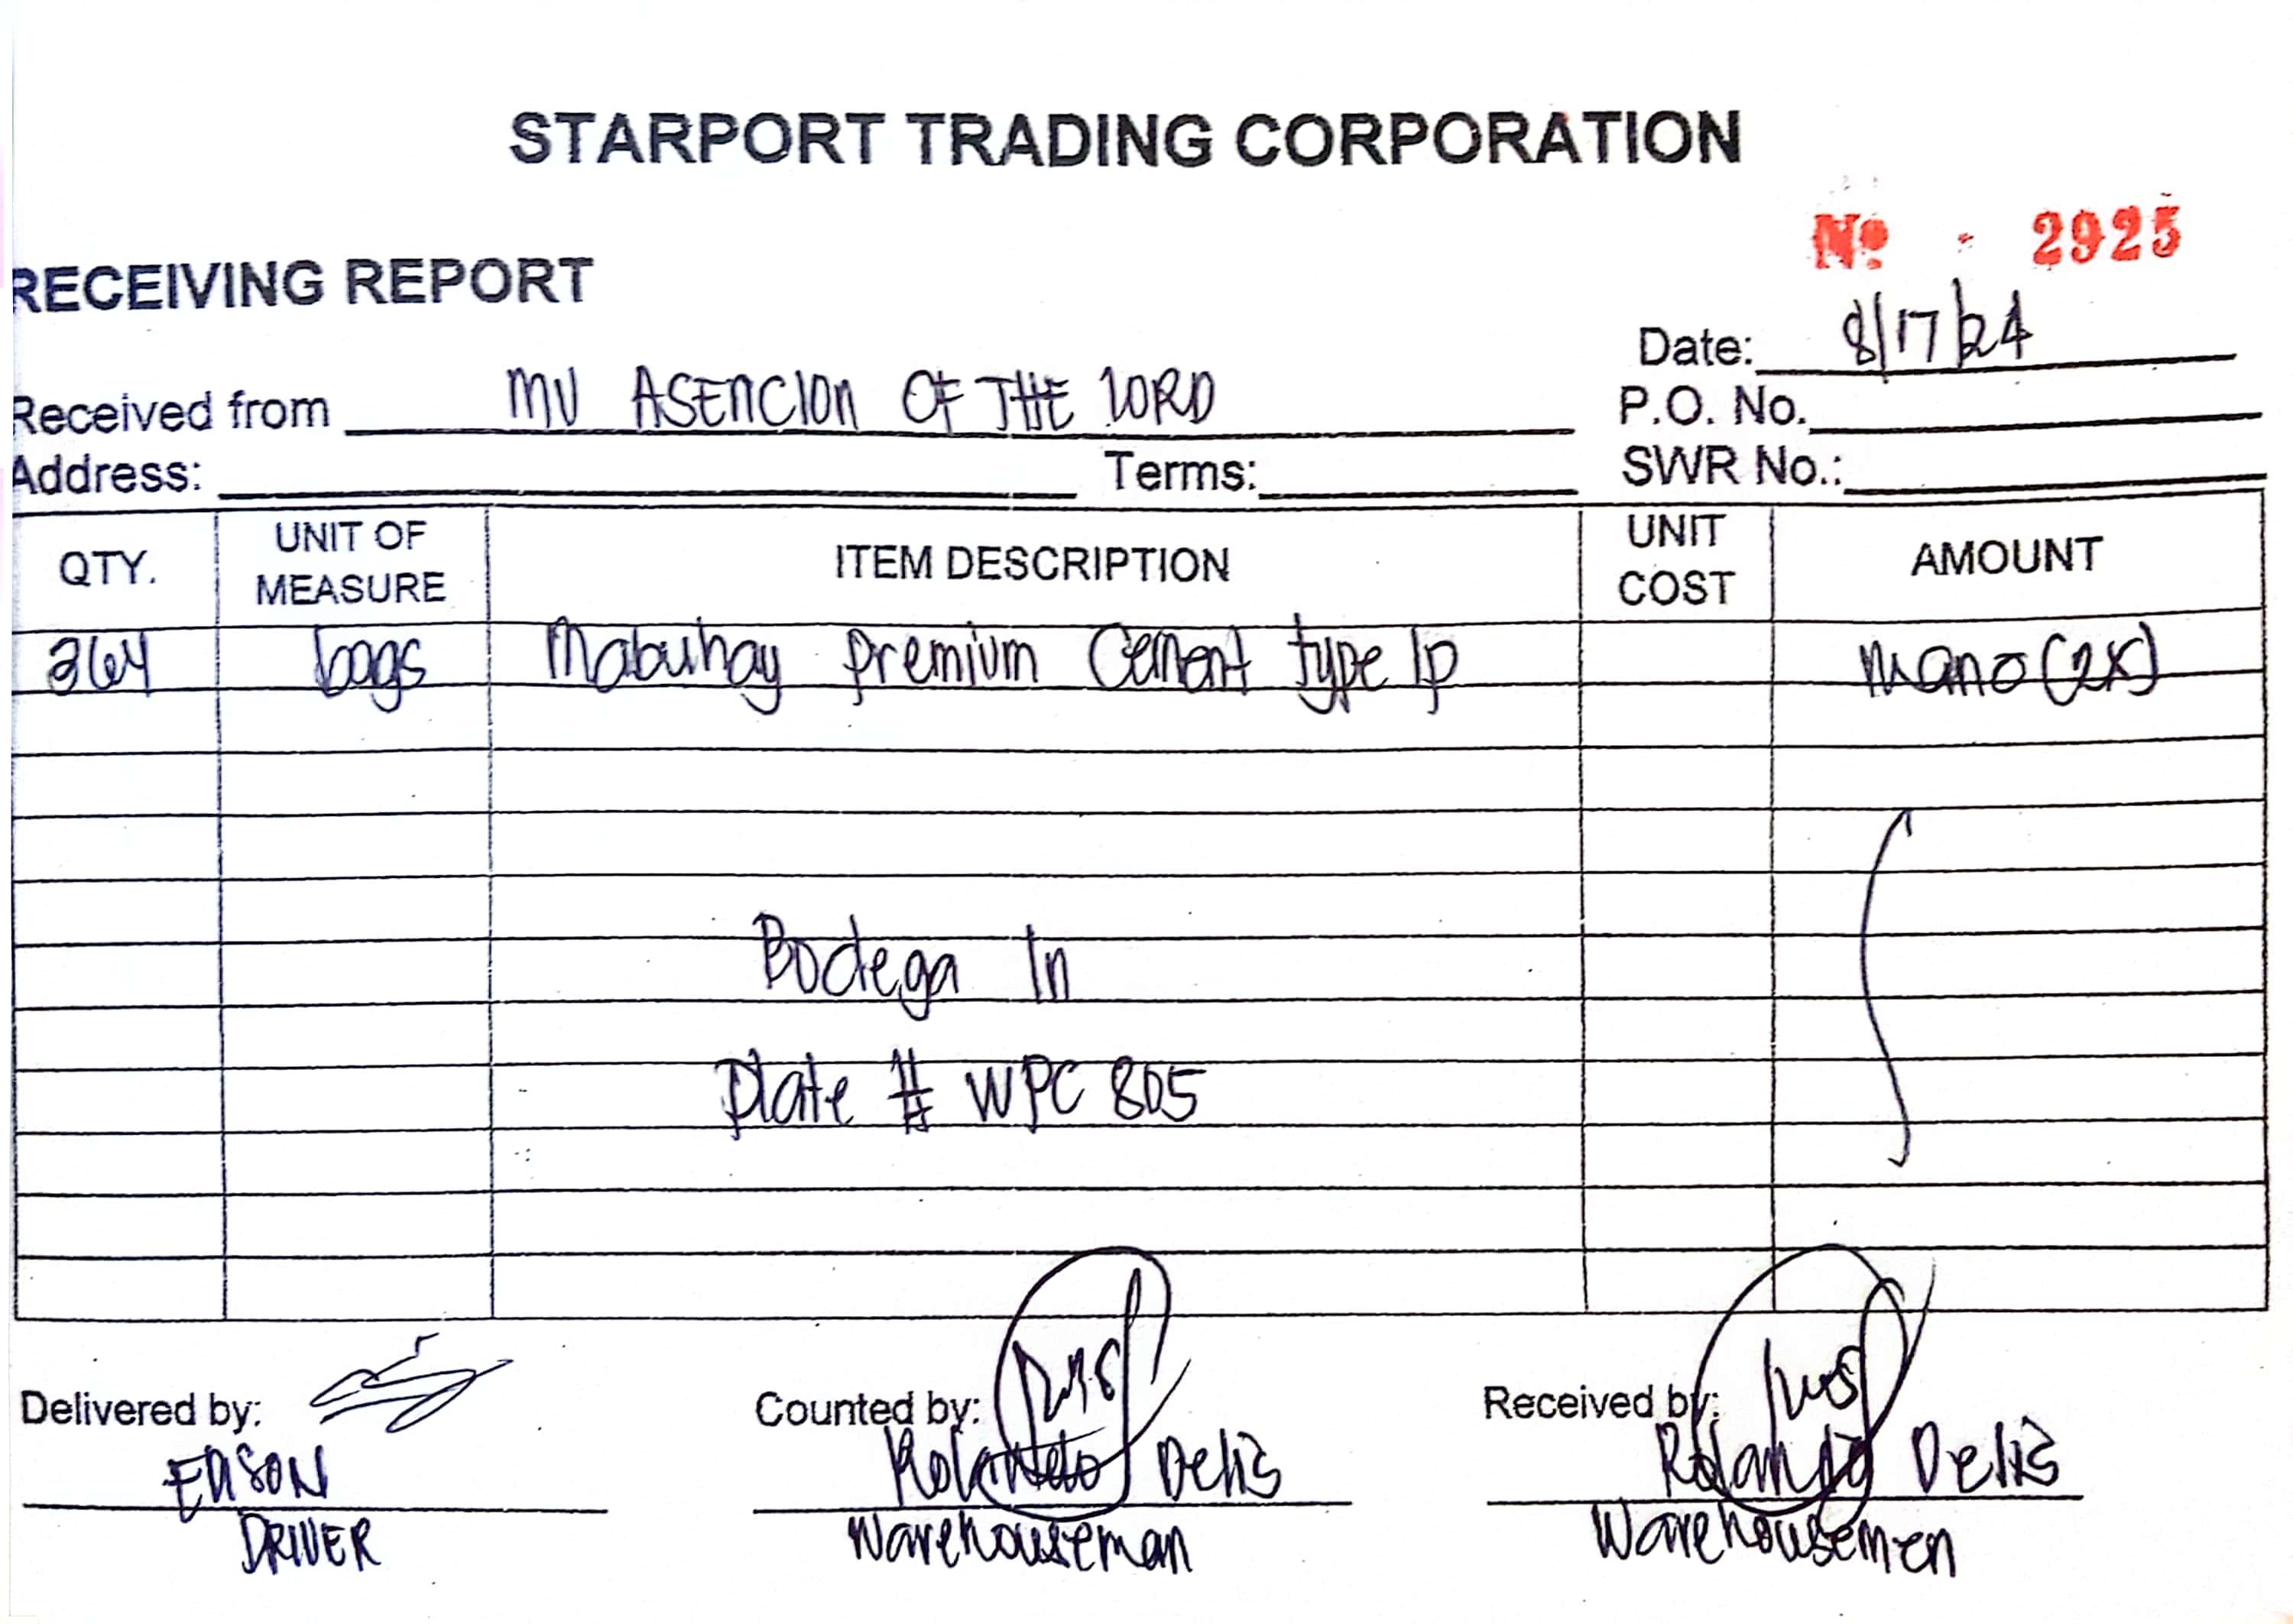 STARPORT TRADING CORPORATION
Nº - 2925
RECEIVING REPORT
Date: 8/17/24
Received from MV ASENCION OF THE LORD
P.O. No.
Address: Terms: SWR No.:
QTY. UNIT OF MEASURE ITEM DESCRIPTION UNIT COST AMOUNT
364 bags Mabuhay premium Cement type 1p mano (2x)
Bodega In
Plate # WPC 805
Delivered by: Counted by: Received by:
EDSON Rolando Delis Rolando Delis
DRIVER Warehouseman Warehousemen